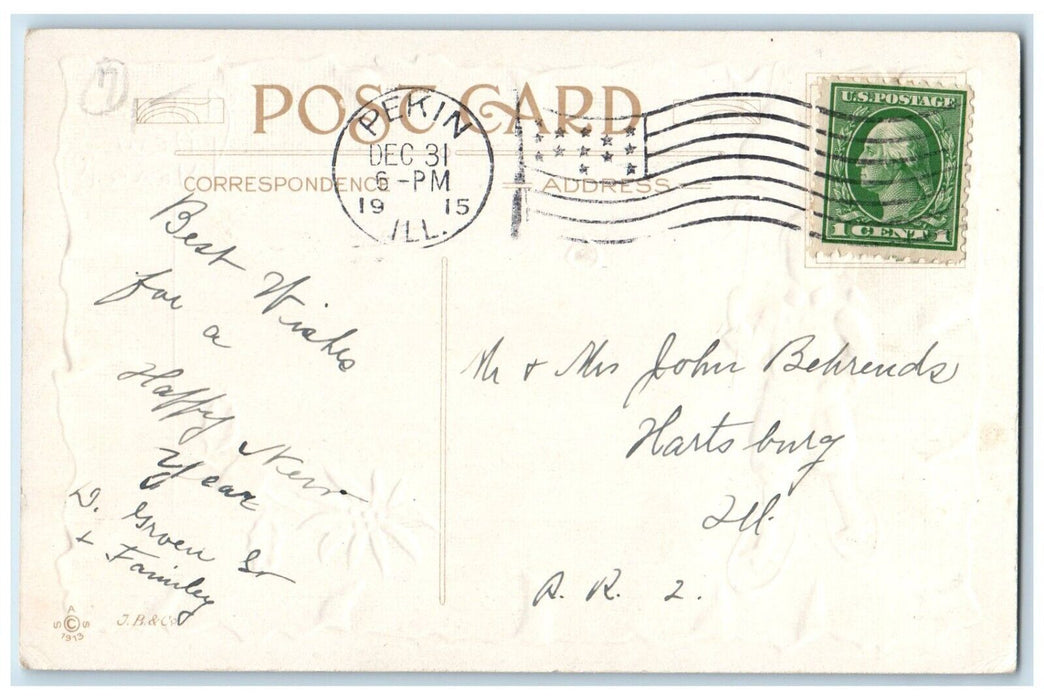 POST CARD
PEKIN
DEC 31
6 - PM
19 15
ILL.
U.S. POSTAGE
1 CENT 1
CORRESPONDENCE
ADDRESS
Best Wishes
for a
Happy New
Year
D. Groen Sr
+ Family
Mr + Mrs John Behrends
Hartsburg
Ill.
R. R. 2.
A
S © S
1913
J.B.& Co